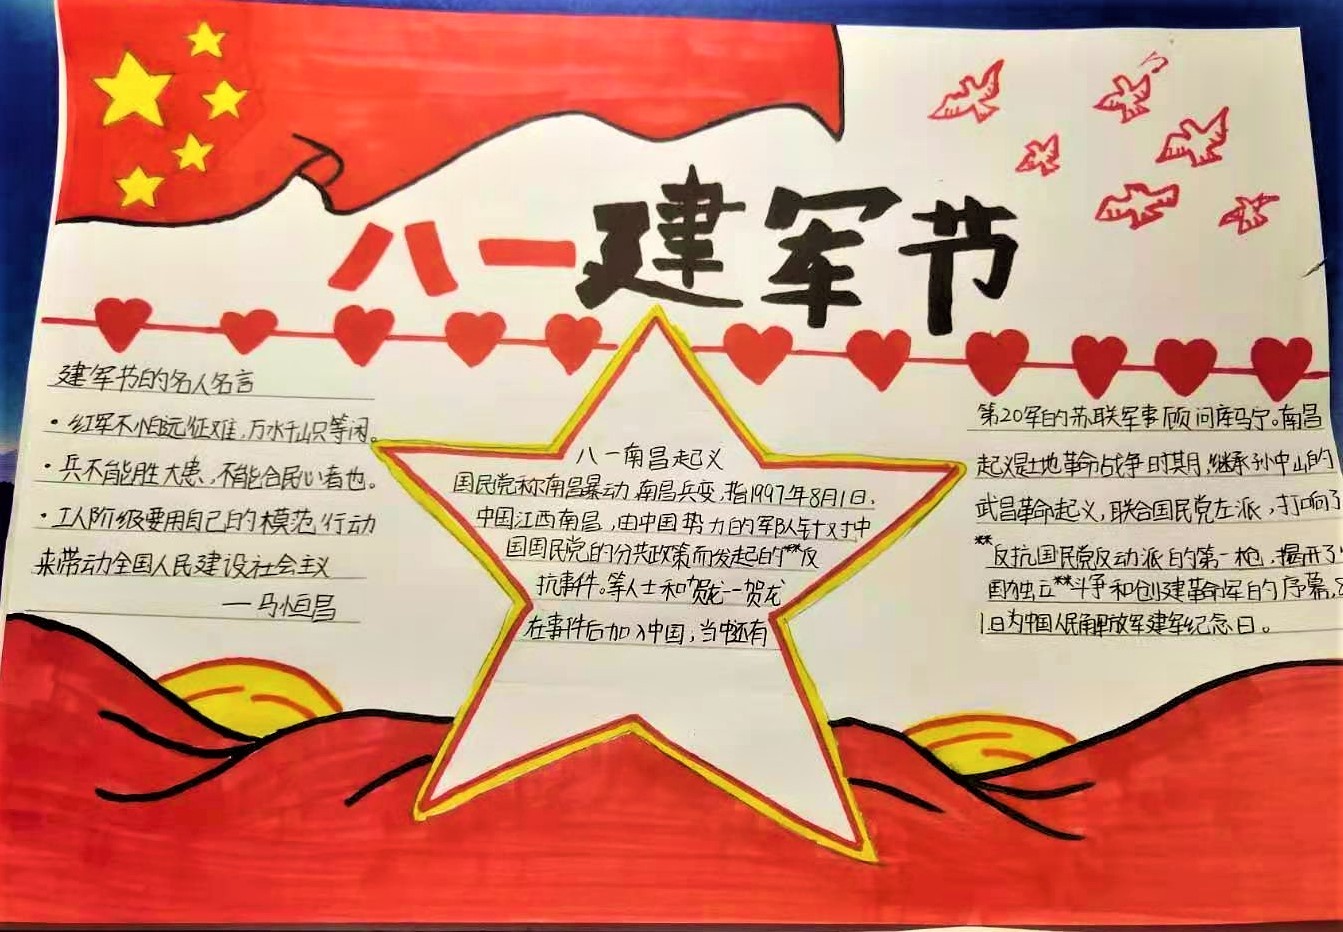 八一建军节
建军节的名人名言
·红军不怕远征难,万水千山只等闲。
·兵不能胜大患,不能合民心者也。
·工人阶级要用自己的模范行动
来带动全国人民建设社会主义
—马恒昌
八一南昌起义
国民党称南昌暴动,南昌兵变,指1997年8月1日,
中国江西南昌,由中国势力的军队针对中
国国民党的分共政策而发起的**反
抗事件。等人士和贺龙--贺龙
在事件后加入中国,当中还有
第20军的苏联军事顾问库马宁。南昌
起义是土地革命战争时期,继承孙中山的
武昌革命起义,联合国民党左派,打响了
**反抗国民党反动派的第一枪,揭开了
国独立**斗争和创建革命军的序幕,
1日为中国人民解放军建军纪念日。